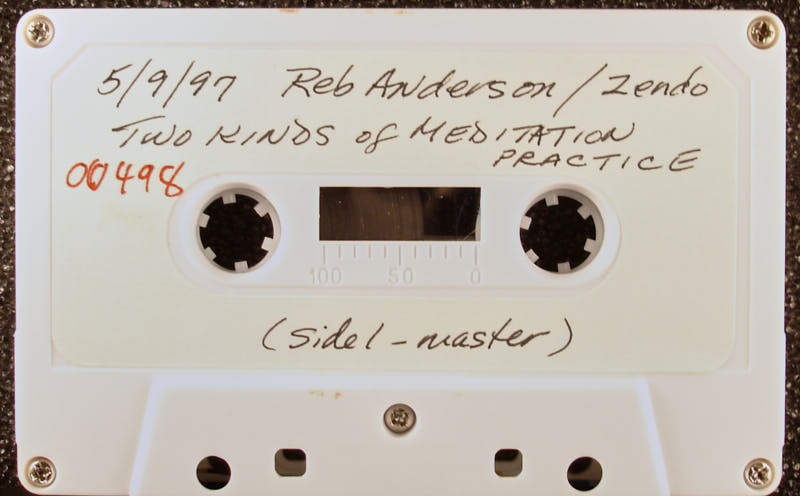 5/9/97 Reb Anderson / Zendo
TWO KINDS of MEDITATION
PRACTICE
00498
100 50 0
(side 1 - master)